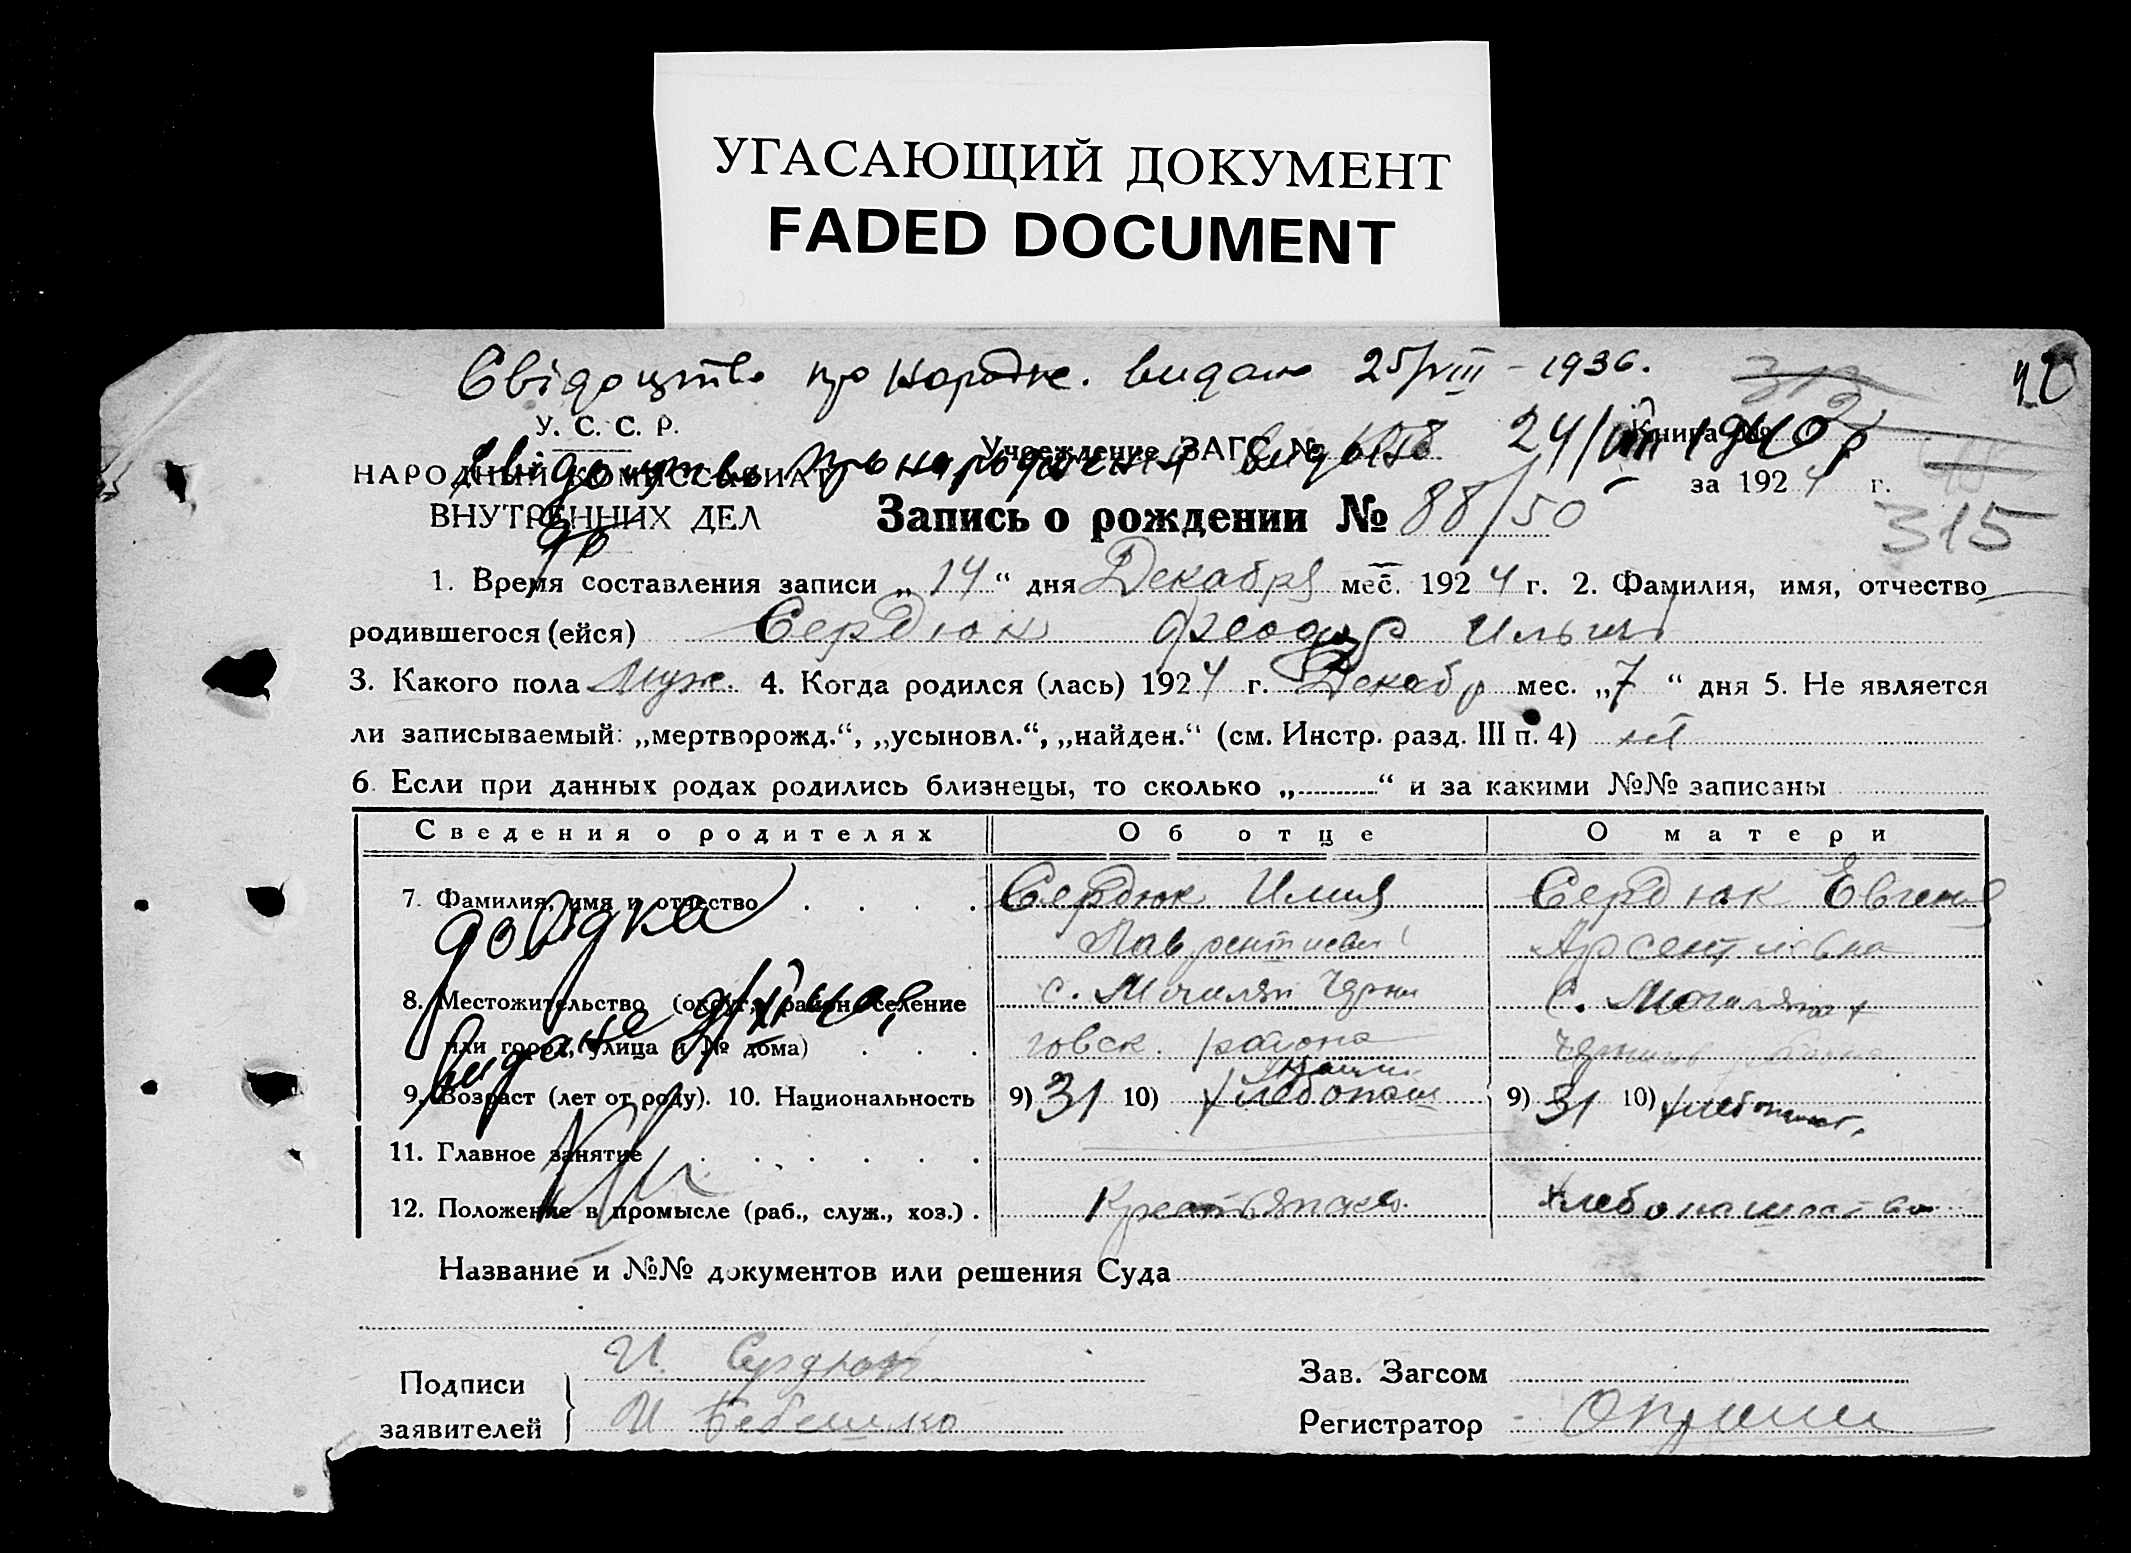 УГАСАЮЩИЙ ДОКУМЕНТ
FADED DOCUMENT
Свідоцтво про народже. видано 25/VIII - 1936.
У. С. С. Р.
Учреждение ЗАГС №
Книга №
Свідоцтво про народження видано 24/VIII 1940 р
НАРОДНЫЙ КОМИССАРИАТ
ВНУТРЕННИХ ДЕЛ
за 1924 г.
Запись о рождении № 88/50
315
1. Время составления записи „14“ дня Декабря мес. 1924 г. 2. Фамилия, имя, отчество
родившегося (ейся) Сердюк Феодор Ильич
3. Какого пола Муж. 4. Когда родился (лась) 1924 г. Декабр мес. „7“ дня 5. Не является
ли записываемый: „мертворожд.“, „усыновл.“, „найден.“ (см. Инстр. разд. III п. 4) нет
6. Если при данных родах родились близнецы, то сколько „..........“ и за какими №№ записаны
Сведения о родителях Об отце О матери
7. Фамилия, имя и отчество Сердюк Илия Сердюк Евгения
довідка Лаврентиеви Арсентиевна
8. Местожительство (округ, район, селение с. Черни с.
или город, улица и № дома) говск. района
видане
9. Возраст (лет от роду). 10. Национальность 9) 31 10) хлебопаш 9) 31 10) хлебопаш.
11. Главное занятие
12. Положение в промысле (раб., служ., хоз.) Хлебопашество
Название и №№ документов или решения Суда
Подписи
заявителей
И. Сердюк
И
Зав. Загсом
Регистратор